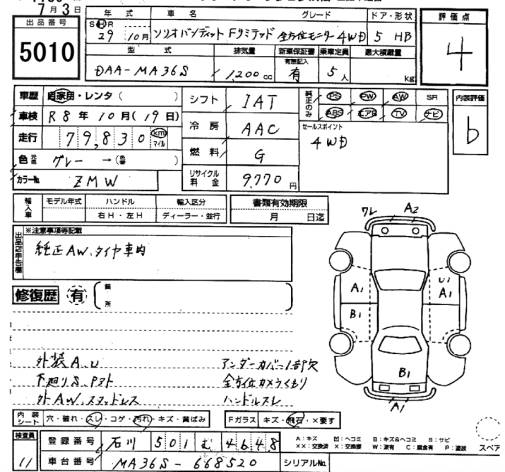 7月3日
出品番号 5010
年式 車名 グレード ドア・形状
S・H・R 29 10月 ソリオバンディット Fリミテッド 全方位モニター 4WD 5 HB
評価点 4
型式 排気量 新車保証書 乗車定員 最大積載量
DAA-MA36S 1,200cc 有 5人 Kg
車歴 自家用・レンタ( )
シフト IAT
純正のみ PS PW AW SR
ABS エアB TV ナビ
内装評価 b
車検 R8年10月(19日)
冷房 AAC
セールスポイント
4WD
走行 79,830 km マイル
燃料 G
色 グレー → ( )
カラーNo. ZMW
リサイクル料金 9,770円
輸入車 モデル年式 ハンドル 輸入区分 書類有効期限
右H・左H ディーラー・並行 月 日迄
※注意事項等記載
純正AW.タイヤ車内
修復歴 有 箇所
外装A.U
下廻りS.
外AW.スタッドレス
アンダーカバー1部欠
全方位カメラくもり
ハンドルスレ
ワレ A2
A1 B1 U1 A1
B1
A1
スペア
内装シート 穴・破れ・スレ・コゲ・汚れ・キズ・黄ばみ
Fガラス キズ・飛石・×要す
A:キズ U:ヘコミ B:キズ&ヘコミ S:サビ
検査員 11
登録番号 石川 501 む 4648
車台番号 MA36S-668520
シリアルNo.